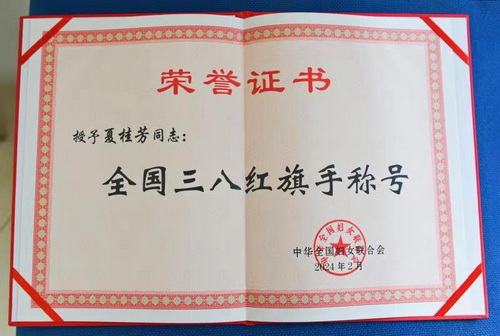 荣誉证书
授予夏桂芳同志：
全国三八红旗手称号
中华全国妇女联合会
2024年2月